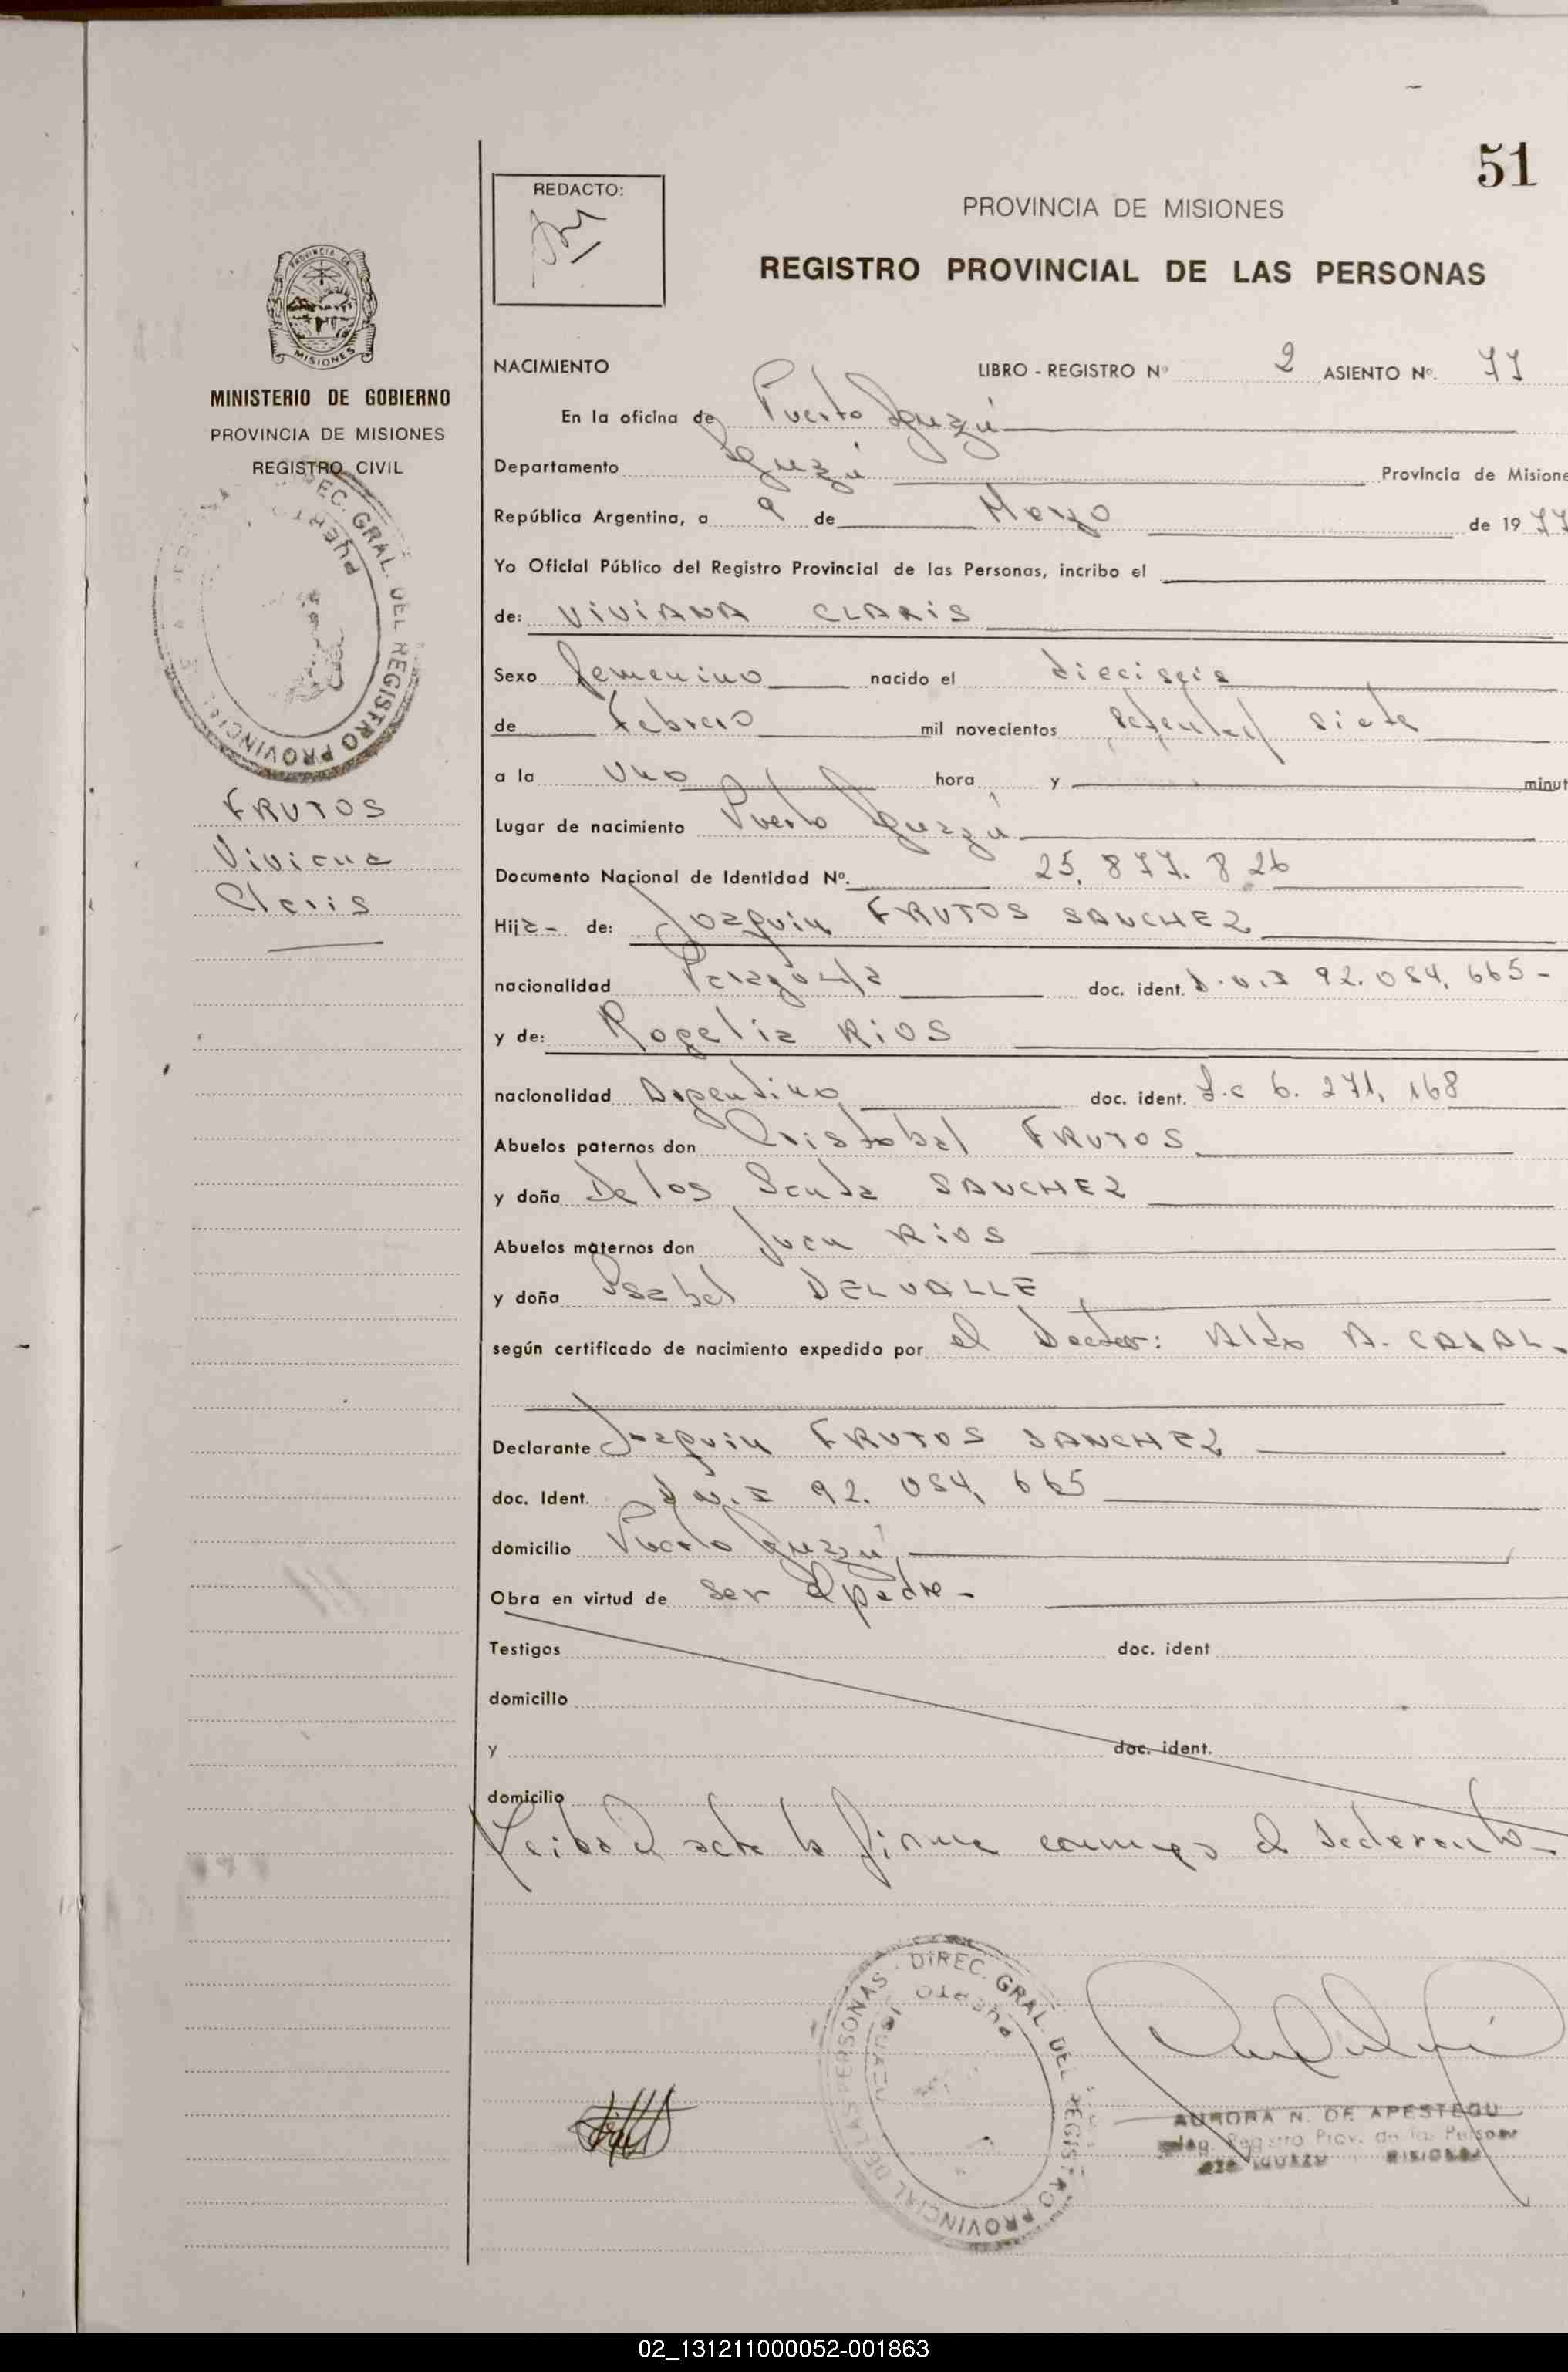 51
REDACTO:
PROVINCIA DE MISIONES
REGISTRO PROVINCIAL DE LAS PERSONAS
PROVINCIA DE
MISIONES
MINISTERIO DE GOBIERNO
PROVINCIA DE MISIONES
REGISTRO CIVIL
DIREC. GRAL. DEL REGISTRO PROVINCIAL
PUERTO
FRUTOS
Viviana
Claris
NACIMIENTO LIBRO - REGISTRO Nº 2 ASIENTO Nº. 77
En la oficina de Puerto Iguazú
Departamento Iguazú Provincia de Misione
República Argentina, a 9 de Mayo de 1977
Yo Oficial Público del Registro Provincial de las Personas, incribo el
de: ViViANA CLARiS
Sexo femenino nacido el dieciseis
de Febrero mil novecientos setenta y siete
a la uno hora y minut
Lugar de nacimiento Puerto Iguazú
Documento Nacional de Identidad Nº. 25.877.826
Hija- de: Joaquin FRUTOS SANCHEZ
nacionalidad Paraguaya doc. ident. D.N.I 92.084.665-
y de: Rogelia RiOS
nacionalidad Argentina doc. ident. L.C 6.271.168
Abuelos paternos don Cristobal FRUTOS
y doña De los Santa SANCHEZ
Abuelos maternos don Juan RiOS
y doña Isabel DELVALLE
según certificado de nacimiento expedido por el Doctor: Aldo A. CASAL.
Declarante Joaquin FRUTOS SANCHEZ
doc. Ident. D.N.I 92.084.665
domicilio Puerto Iguazú
Obra en virtud de ser el padre-
Testigos doc. ident
domicilio
y doc. ident.
domicilio
Leida el acta la firma conmigo el declarante-
DIREC. GRAL. DEL REGISTRO PROVINCIAL DE LAS PERSONAS
PUERTO IGUAZU
AURORA N. DE APESTEGU
Registro Prov. de las Person
IGUAZU MISIONES
02_131211000052-001863